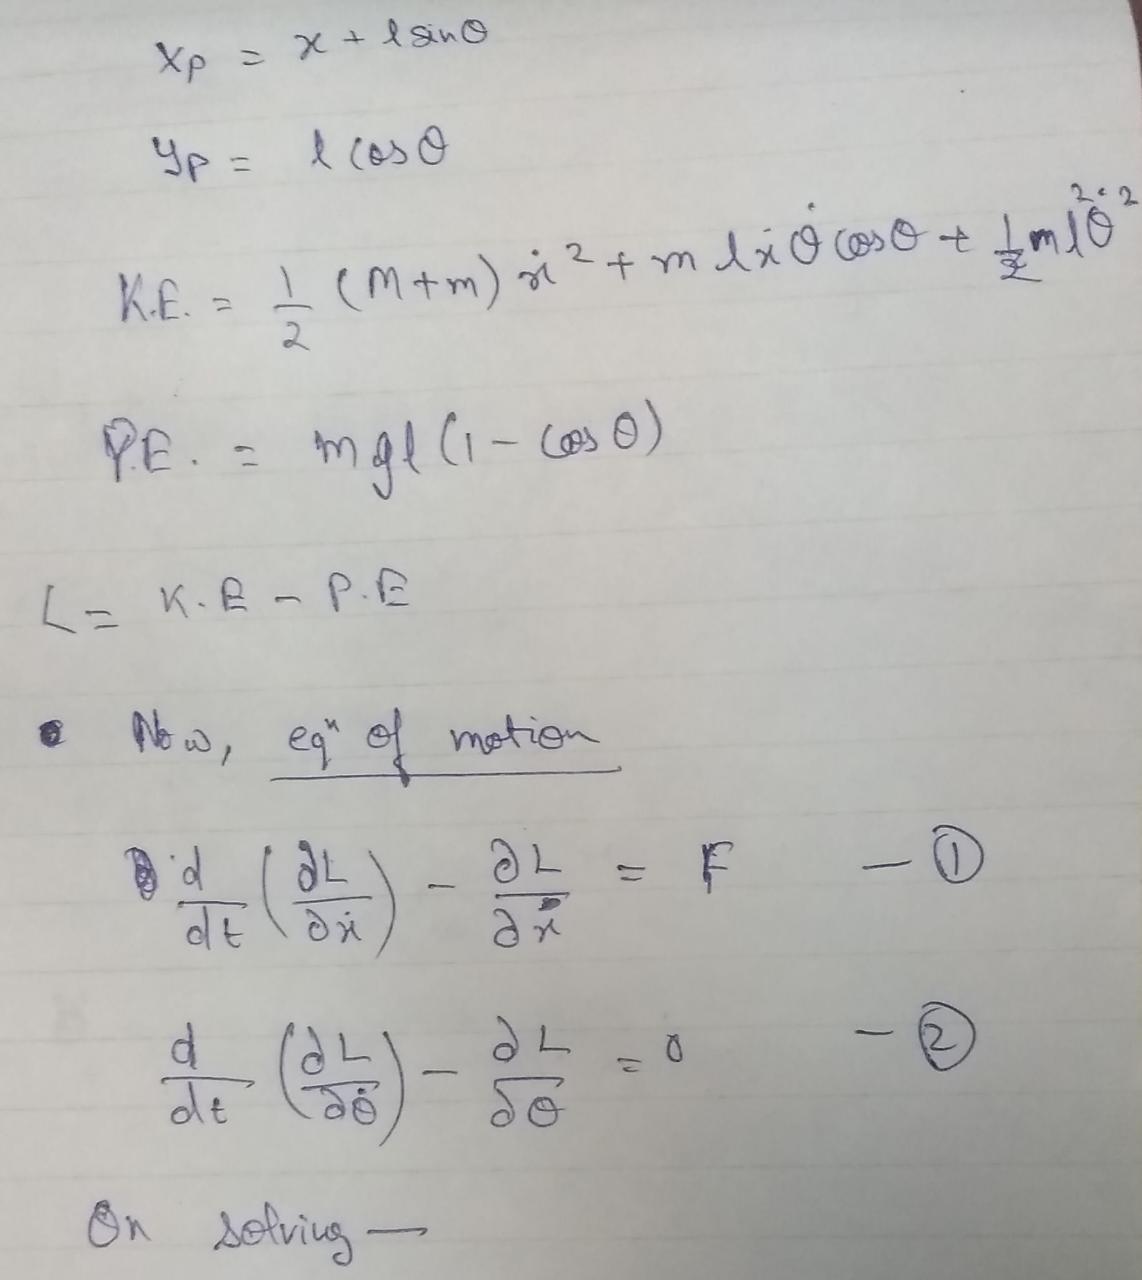 x_p = x + l sinθ
y_p = l cosθ
K.E. = 1/2 (M+m) ẋ² + m l ẋ θ̇ cosθ + 1/2 m l² θ̇²
P.E. = mgl (1 - cosθ)
L = K.E - P.E
Now, eqⁿ of motion
d/dt (∂L/∂ẋ) - ∂L/∂x = F — ①
d/dt (∂L/∂θ̇) - ∂L/∂θ = 0 — ②
On solving —